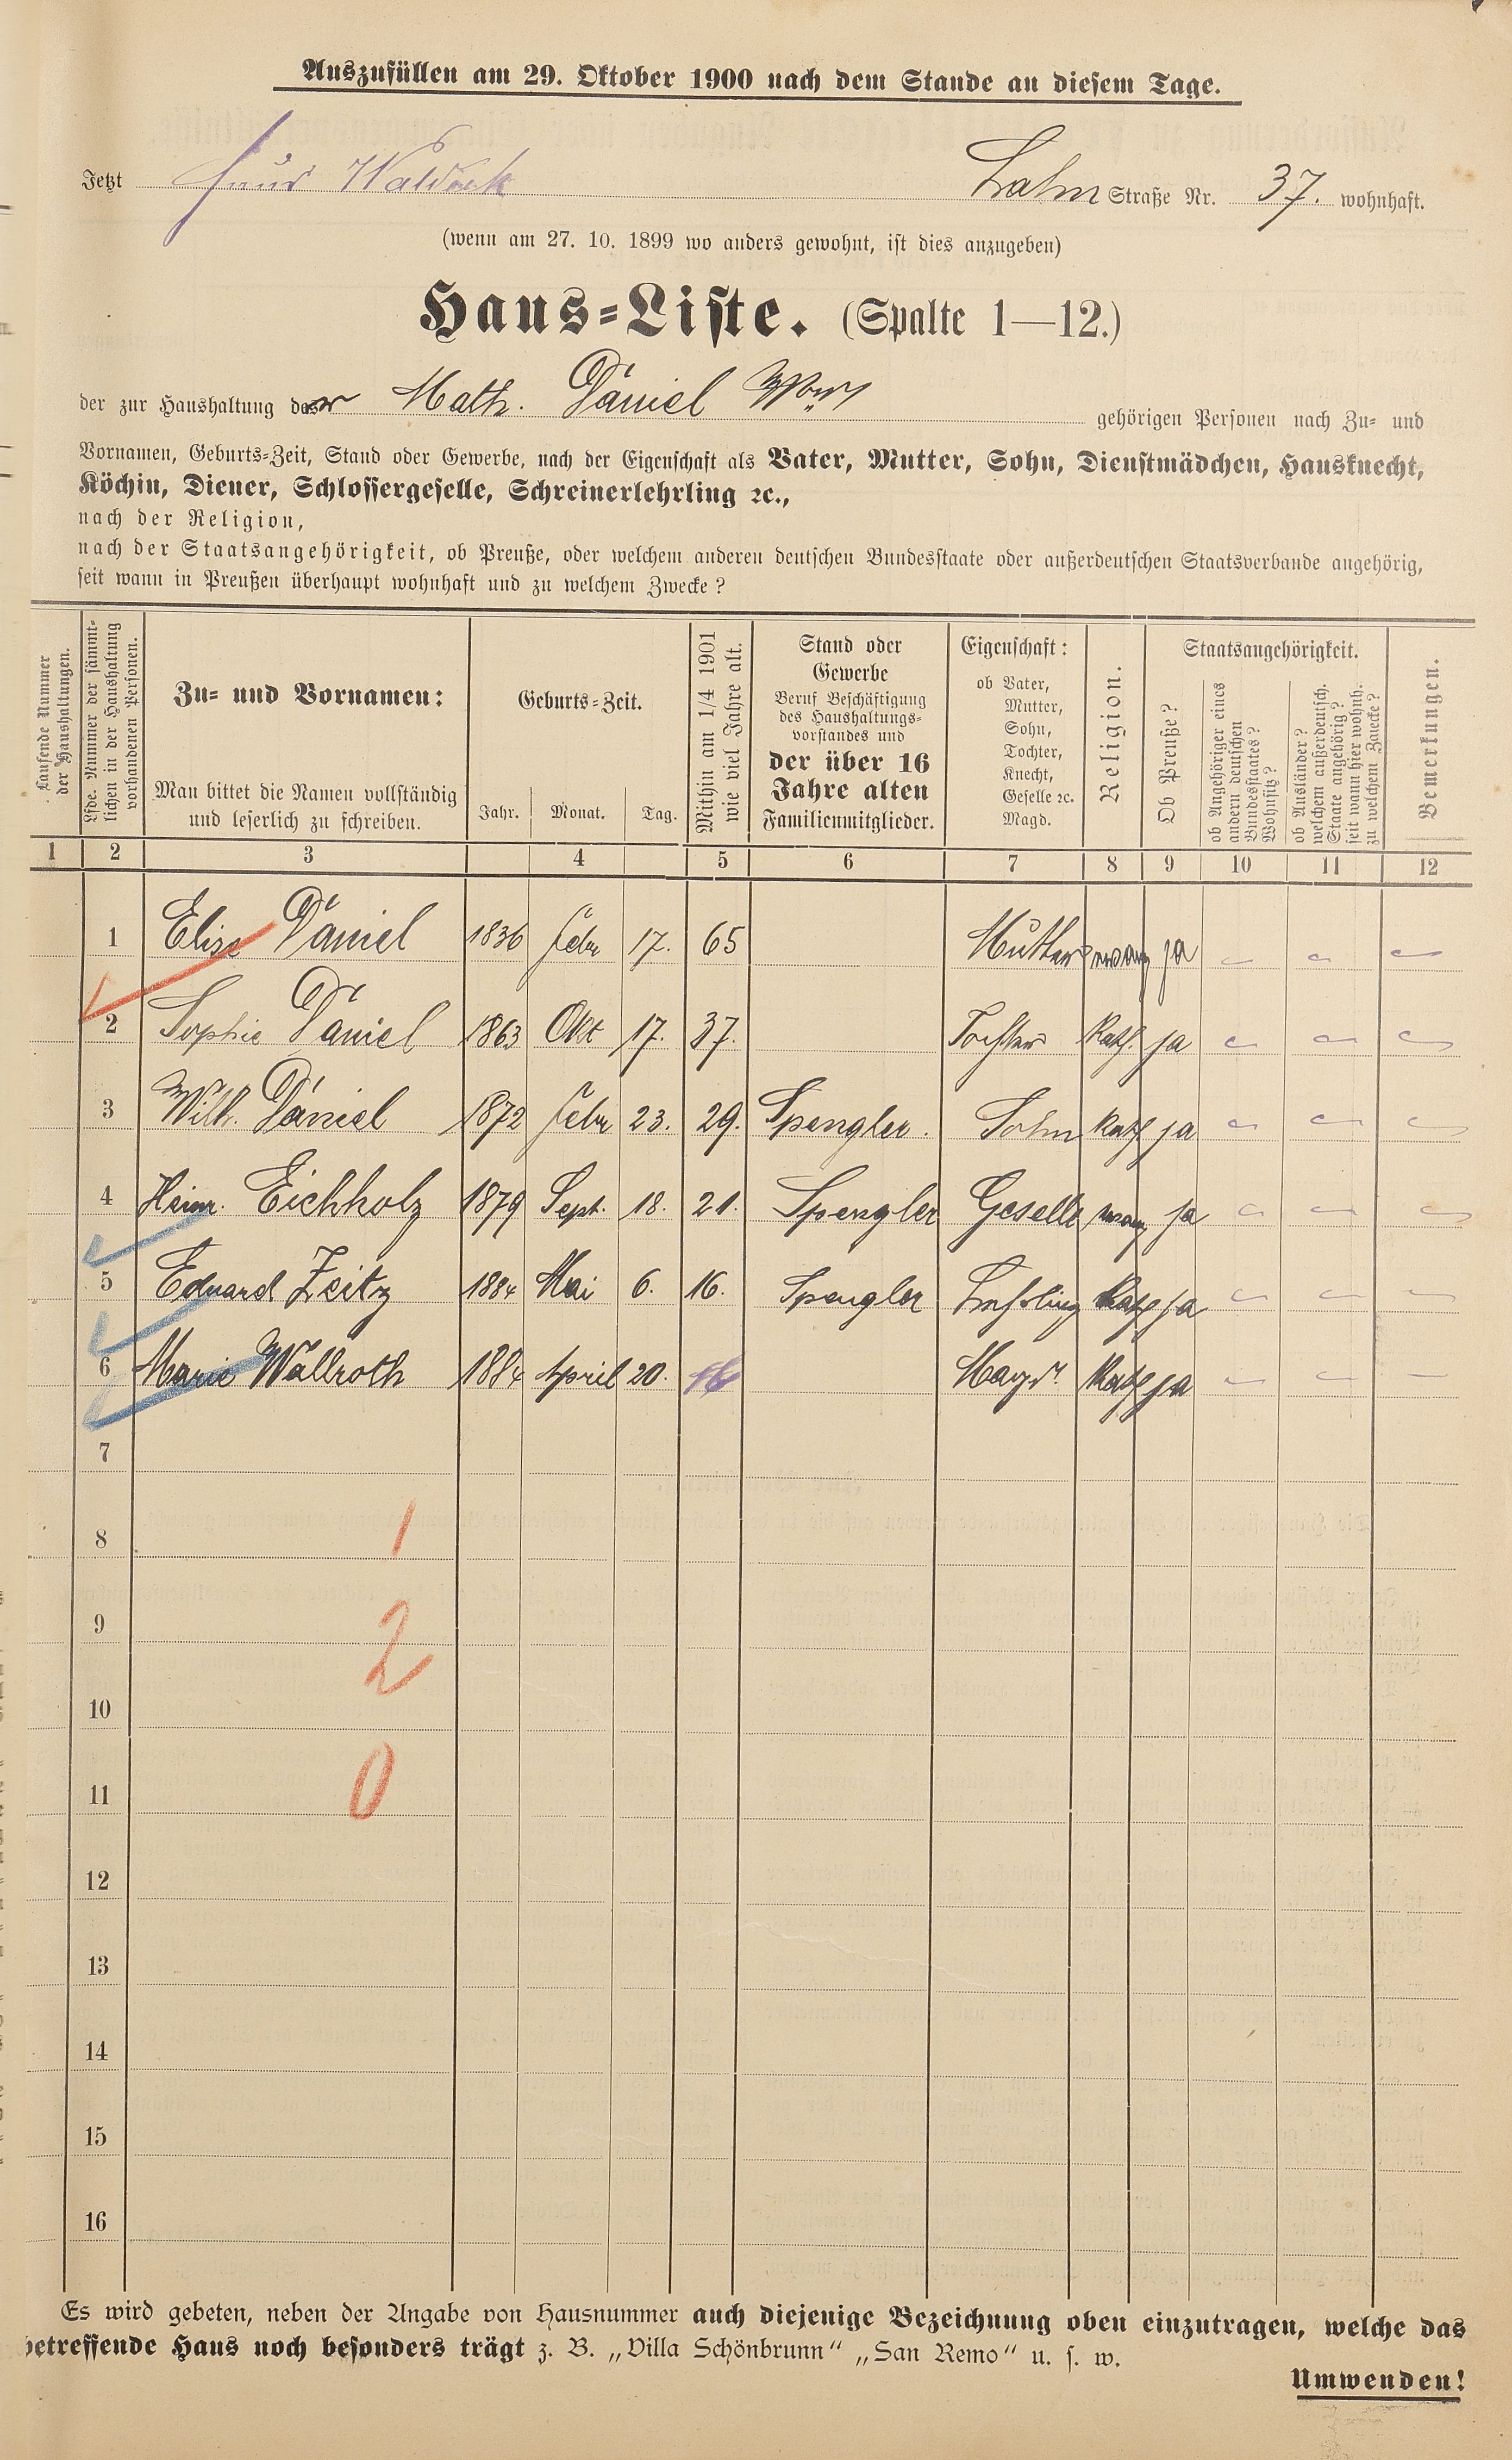 Auszufüllen am 29. Oktober 1900 nach dem Stande an diesem Tage.
Jetzt Haus Waldeck Lahn Straße Nr. 37. wohnhaft.
(wenn am 27. 10. 1899 wo anders gewohnt, ist dies anzugeben)
Haus-Liste. (Spalte 1—12.)
der zur Haushaltung der Math. Däniel Ww. gehörigen Personen nach Zu- und
Vornamen, Geburts-Zeit, Stand oder Gewerbe, nach der Eigenschaft als Vater, Mutter, Sohn, Dienstmädchen, Hausknecht,
Köchin, Diener, Schlossergeselle, Schreinerlehrling ꝛc.,
nach der Religion,
nach der Staatsangehörigkeit, ob Preuße, oder welchem anderen deutschen Bundesstaate oder außerdeutschen Staatsverbande angehörig,
seit wann in Preußen überhaupt wohnhaft und zu welchem Zwecke?
Laufende Nummer
der Haushaltungen.
Lfde. Nummer der sämmt-
lichen in der Haushaltung
vorhandenen Personen.
Zu- und Vornamen:
Man bittet die Namen vollständig
und leserlich zu schreiben.
Geburts-Zeit.
Jahr. Monat. Tag.
Mithin am 1/4 1901
wie viel Jahre alt.
Stand oder
Gewerbe
Beruf Beschäftigung
des Haushaltungs-
vorstandes und
der über 16
Jahre alten
Familienmitglieder.
Eigenschaft:
ob Vater,
Mutter,
Sohn,
Tochter,
Knecht,
Geselle ꝛc.
Magd.
Religion.
Staatsangehörigkeit.
Ob Preuße?
ob Angehöriger eines
andern deutschen
Bundesstaates?
Wohnsitz?
ob Ausländer?
welchem außerdeutsch.
Staate angehörig?
seit wann hier wohnh.
zu welchem Zwecke?
Bemerkungen.
1 2 3 4 5 6 7 8 9 10 11 12
1 Elise Däniel 1836 Febr 17. 65 Mutter evang ja
2 Sophie Däniel 1863 Okt 17. 37. Tochter Kath. ja
3 Wilh. Däniel 1872 Febr 23. 29. Spengler. Sohn Kath ja
4 Heinr. Eichholz 1879 Sept. 18. 21. Spengler Geselle evang ja
5 Eduard Zeitz 1884 Mai 6. 16. Spengler Lehrling Kath ja
6 Marie Wallroth 1884 April 20. 16 Magd. Kath ja
7
8 1
9 2
10
11 0
12
13
14
15
16
Es wird gebeten, neben der Angabe von Hausnummer auch diejenige Bezeichnung oben einzutragen, welche das
betreffende Haus noch besonders trägt z. B. „Villa Schönbrunn“ „San Remo“ u. s. w.
Umwenden!